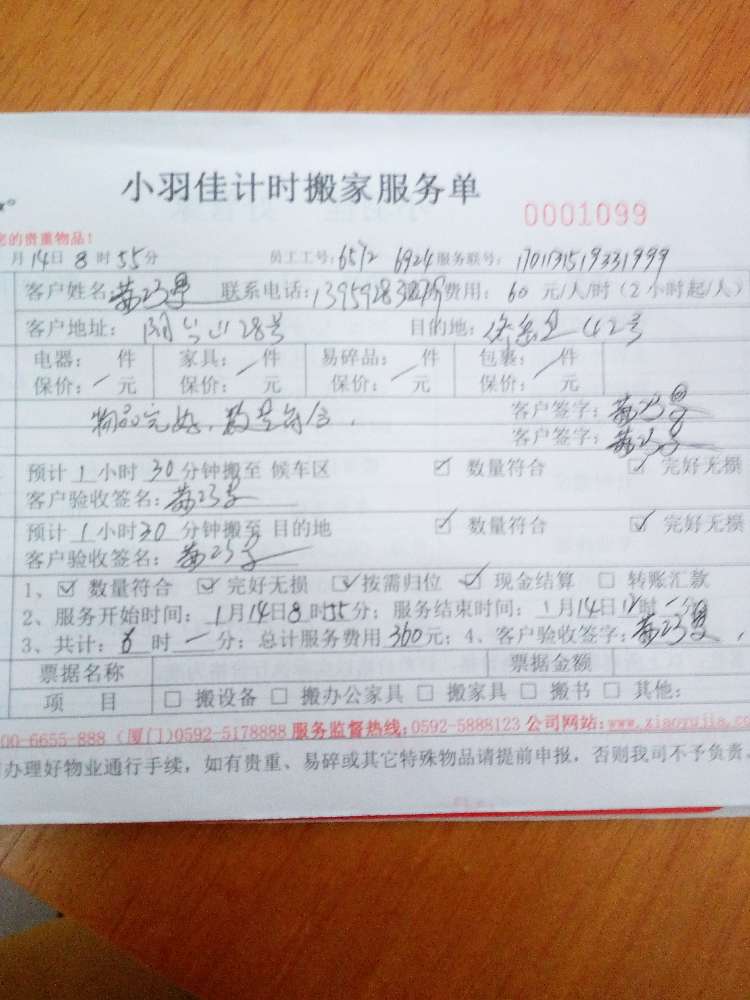 小羽佳计时搬家服务单
0001099
您的贵重物品!
月14日8时55分 员工工号:6572 6924服务联号:1701131519331999
客户姓名: 联系电话:费用:60元/人/时(2小时起/人)
客户地址:28号 目的地:42号
电器:/件 家具:/件 易碎品:/件 包裹:/件
保价:/元 保价:/元 保价:/元 保价:/元
物品完好,数量符合. 客户签字:
客户签字:
预计1小时30分钟搬至 候车区 ☑数量符合 ☑完好无损
客户验收签名:
预计1小时30分钟搬至 目的地 ☑数量符合 ☑完好无损
客户验收签名:
1、☑数量符合 ☑完好无损 ☑按需归位 ☑现金结算 □转账汇款
2、服务开始时间:1月14日8时55分;服务结束时间:1月14日12时一分
3、共计:6时一分;总计服务费用360元;4、客户验收签字:
票据名称 票据金额
项目 □搬设备 □搬办公家具 □搬家具 □搬书 □其他:
00-6655-888(厦门)0592-5178888服务监督热线:0592-5888123公司网站:www.xiaoyujia.com
办理好物业通行手续,如有贵重、易碎或其它特殊物品请提前申报,否则我司不予负责.